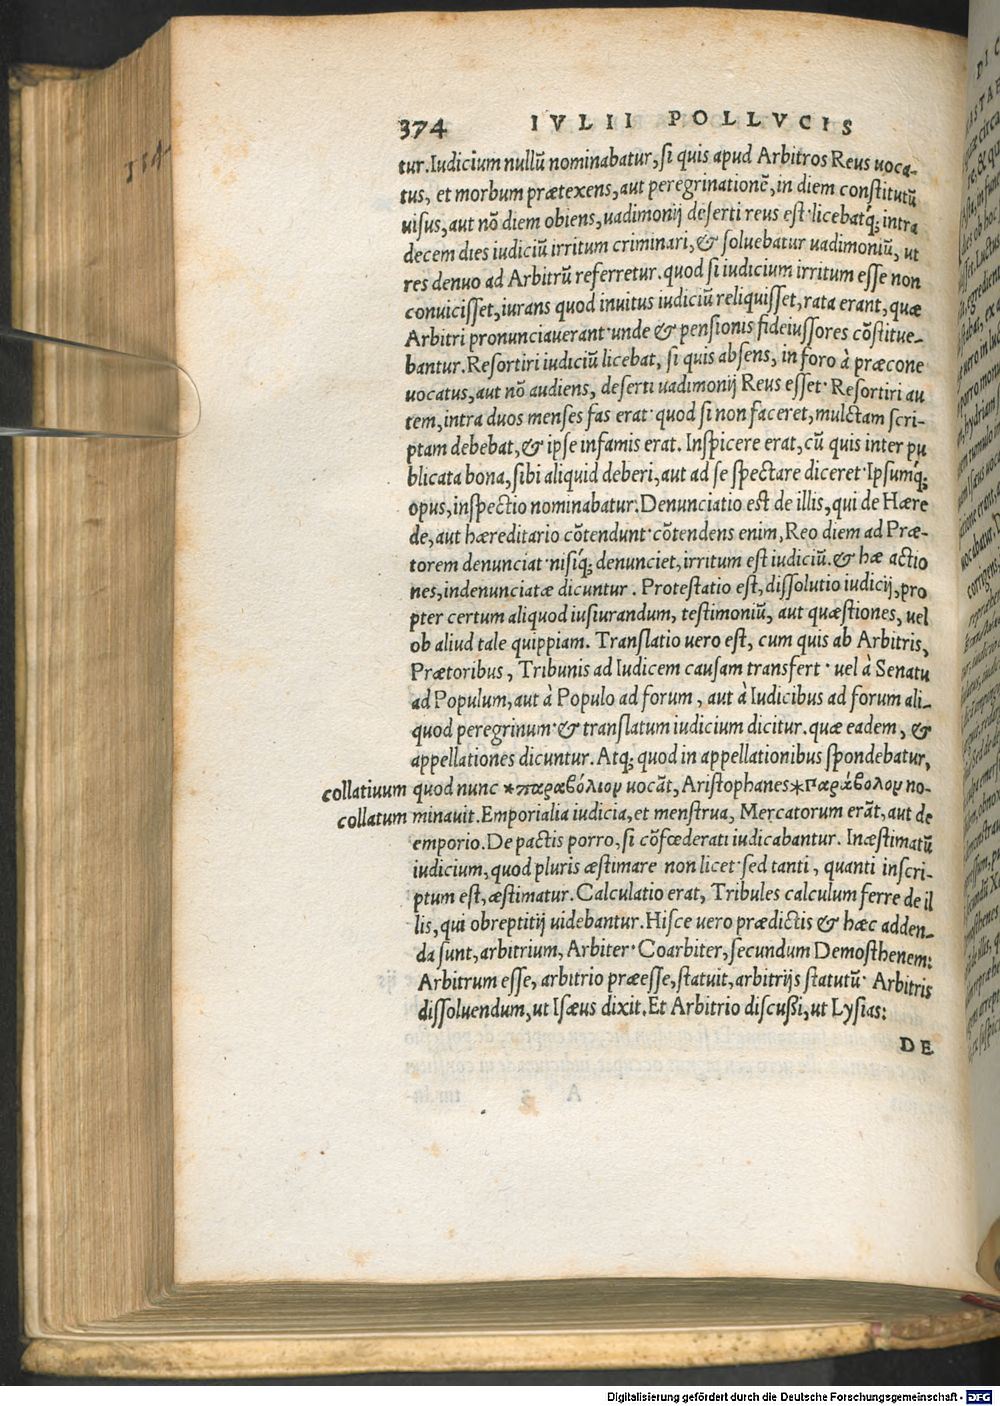 374 IVLII POLLVCIS
154
tur. Iudicium nullū nominabatur, si quis apud Arbitros Reus uoca-
tus, et morbum prætexens, aut peregrinationē, in diem constitutū
uisus, aut nō diem obiens, uadimonij deserti reus est· licebatq́; intra
decem dies iudiciū irritum criminari, & soluebatur uadimoniū, ut
res denuo ad Arbitrū referretur. quod si iudicium irritum esse non
conuicisset, iurans quod inuitus iudiciū reliquisset, rata erant, quæ
Arbitri pronunciauerant· unde & pensionis fideiussores cōstitue-
bantur. Resortiri iudiciū licebat, si quis absens, in foro à præcone
uocatus, aut nō audiens, deserti uadimonij Reus esset· Resortiri au
tem, intra duos menses fas erat· quod si non faceret, mulctam scri-
ptam debebat, & ipse infamis erat. Inspicere erat, cū quis inter pu
blicata bona, sibi aliquid deberi, aut ad se spectare diceret· Ipsumq́;
opus, inspectio nominabatur. Denunciatio est de illis, qui de Hære
de, aut hæreditario cōtendunt· cōtendens enim, Reo diem ad Præ-
torem denunciat· nisiq́; denunciet, irritum est iudiciū. & hæ actio
nes, indenunciatæ dicuntur. Protestatio est, dissolutio iudicij, pro
pter certum aliquod iusiurandum, testimoniū, aut quæstiones, uel
ob aliud tale quippiam. Translatio uero est, cum quis ab Arbitris,
Prætoribus, Tribunis ad Iudicem causam transfert· uel à Senatu
ad Populum, aut à Populo ad forum, aut à Iudicibus ad forum ali-
quod peregrinum· & translatum iudicium dicitur. quæ eadem, &
appellationes dicuntur. Atq; quod in appellationibus spondebatur,
collatiuum quod nunc *παραβόλιον uocāt, Aristophanes *Παράβολον no-
collatum minauit. Emporialia iudicia, et menstrua, Mercatorum erāt, aut de
emporio. De pactis porro, si cōfœderati iudicabantur. Inæstimatū
iudicium, quod pluris æstimare non licet· sed tanti, quanti inscri-
ptum est, æstimatur. Calculatio erat, Tribules calculum ferre de il
lis, qui obreptitij uidebantur. Hisce uero prædictis & hæc adden-
da sunt, arbitrium, Arbiter· Coarbiter, secundum Demosthenem:
Arbitrum esse, arbitrio præesse, statuit, arbitrijs statutū· Arbitris
dissoluendum, ut Isæus dixit. Et Arbitrio discussi, ut Lysias:
DE
Digitalisierung gefördert durch die Deutsche Forschungsgemeinschaft - DFG